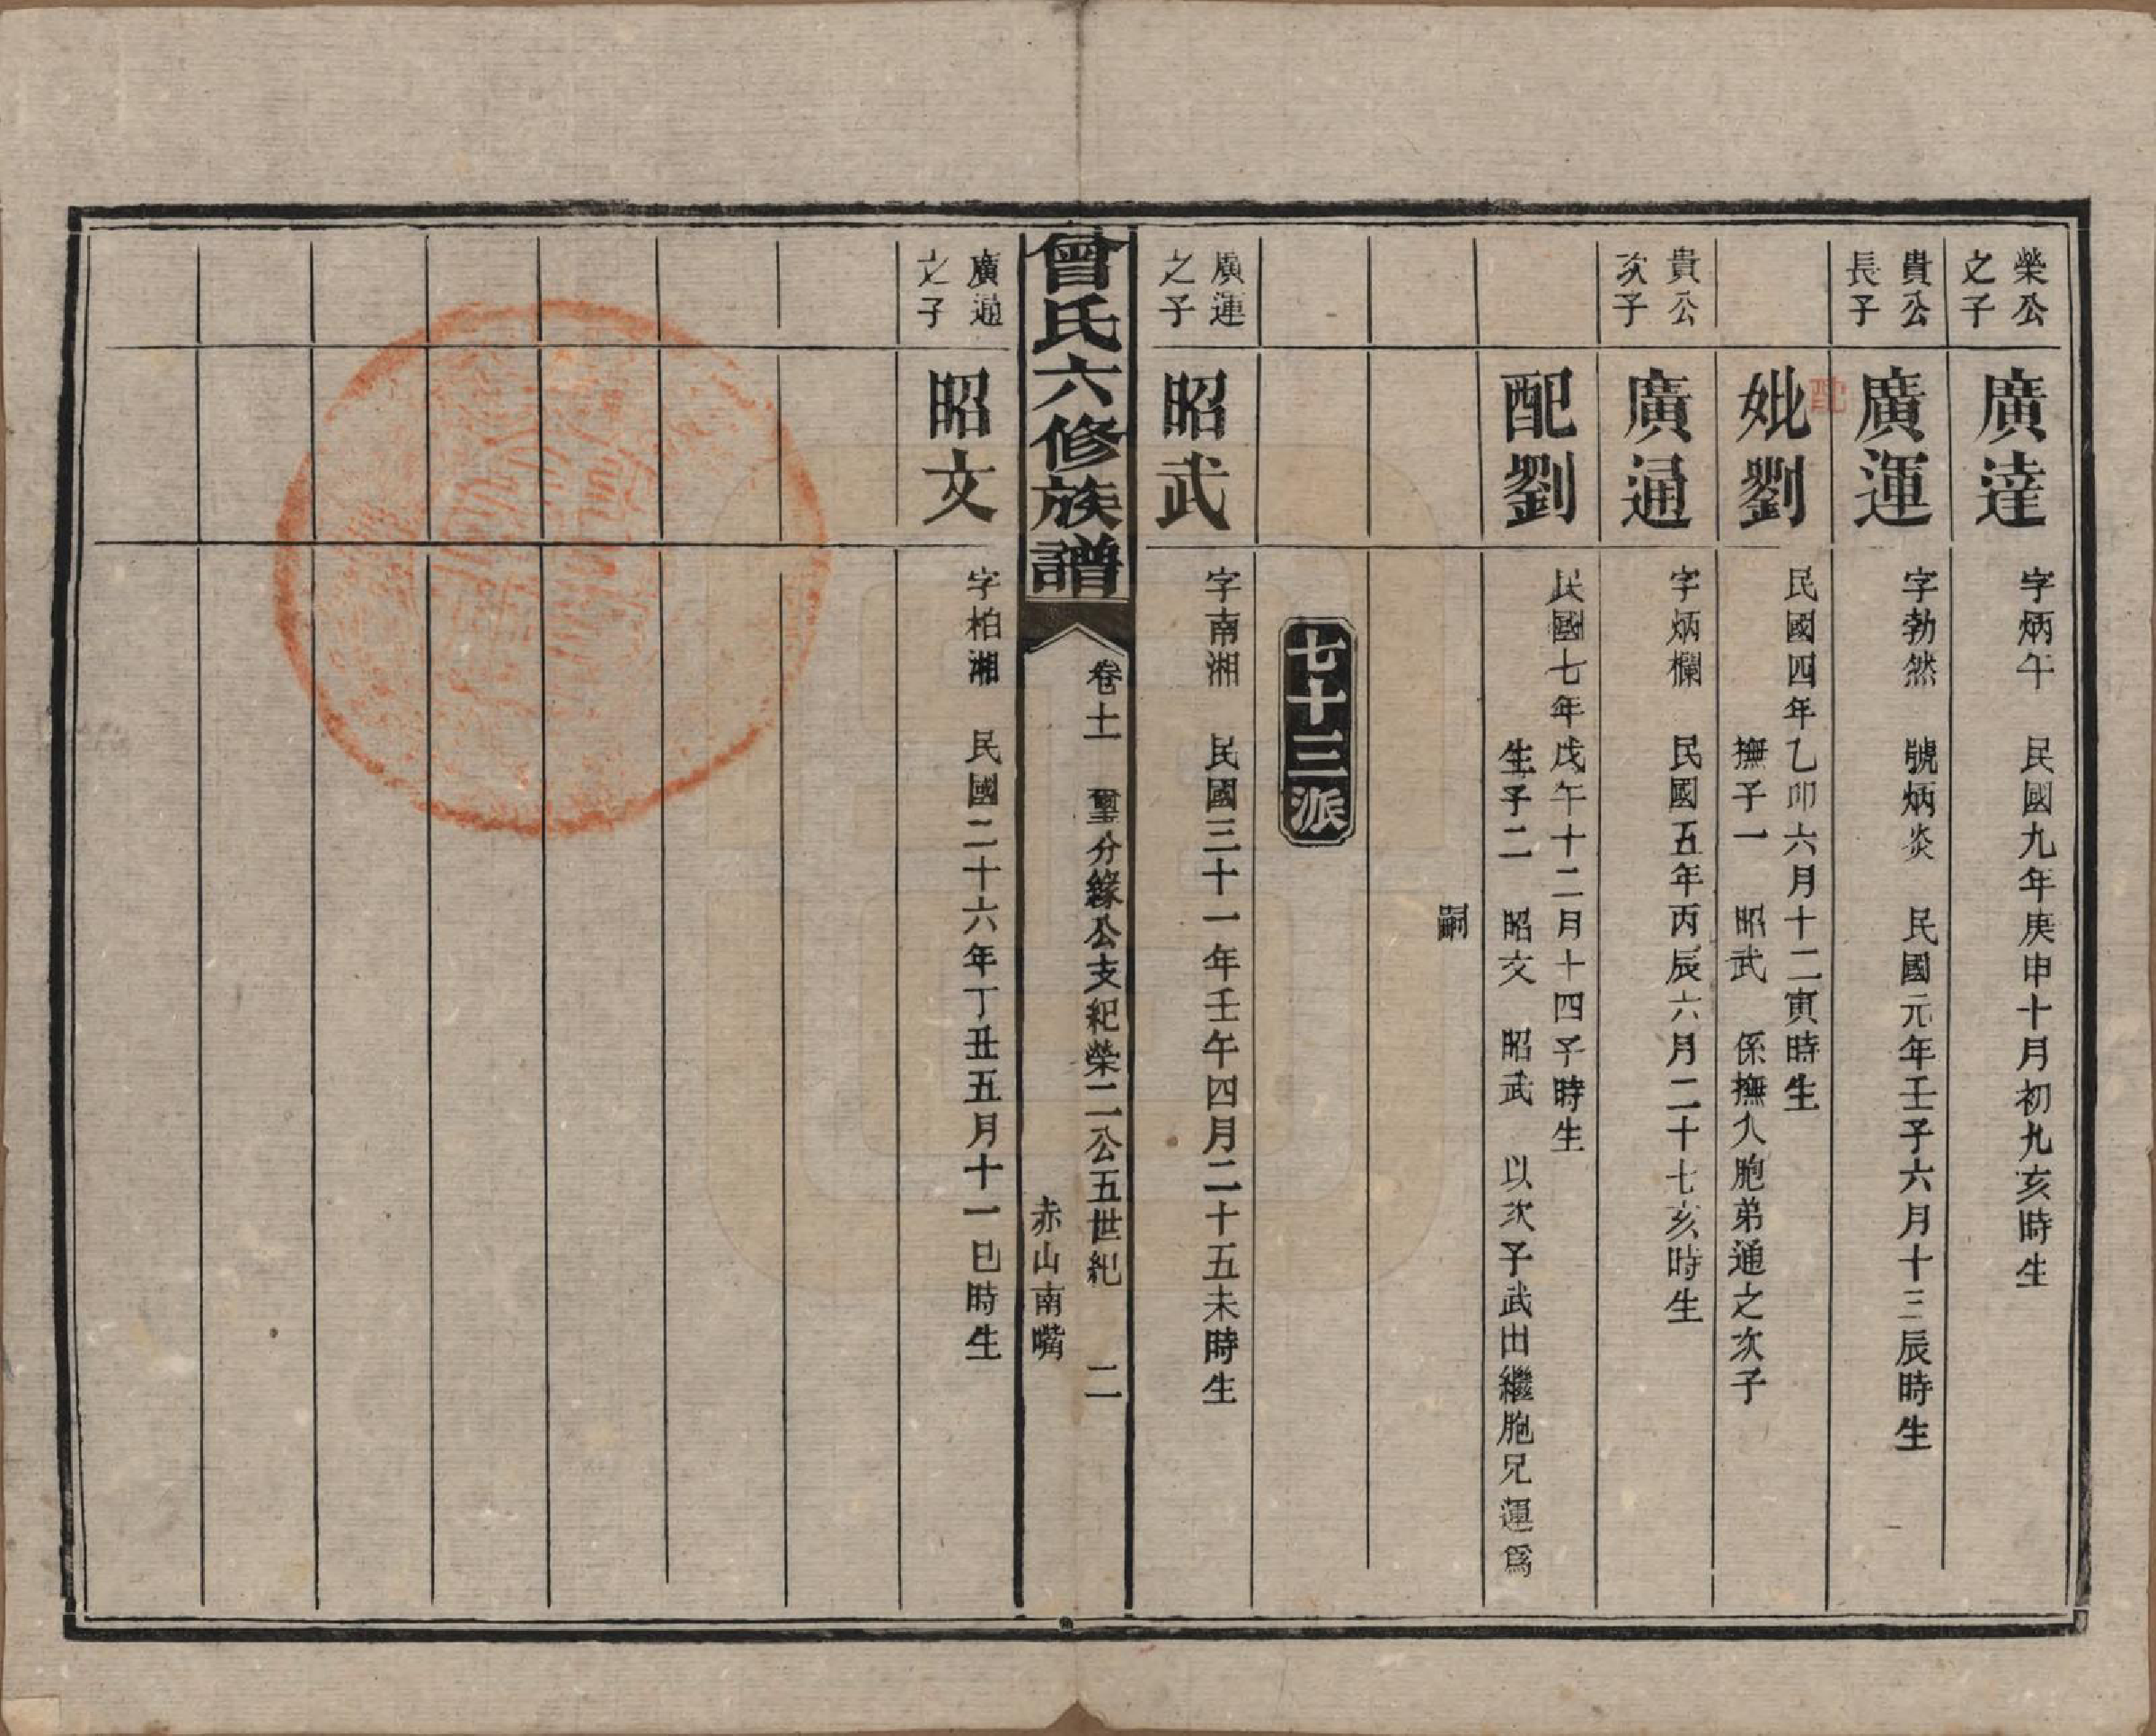 榮公
之子
廣達
字炳午　民國九年庚申十月初九亥時生
貴公
長子
廣運
字勃然　號炳炎　民國元年壬子六月十三辰時生
配
妣劉
民國四年乙卯六月十二寅時生
撫子一　昭武　係撫人胞弟通之次子
貴公
次子
廣通
字炳欄　民國五年丙辰六月二十七亥時生
配劉
民國七年戊午十二月十四子時生
生子二　昭文　昭武　以次子武出繼胞兄運爲
嗣
七十三派
廣運
之子
昭武
字南湘　民國三十一年壬午四月二十五未時生
曾氏六修族譜
卷十一　璽分緣公支紀榮二公五世紀　二
赤山南嘴
廣通
之子
昭文
字柏湘　民國二十六年丁丑五月十一巳時生